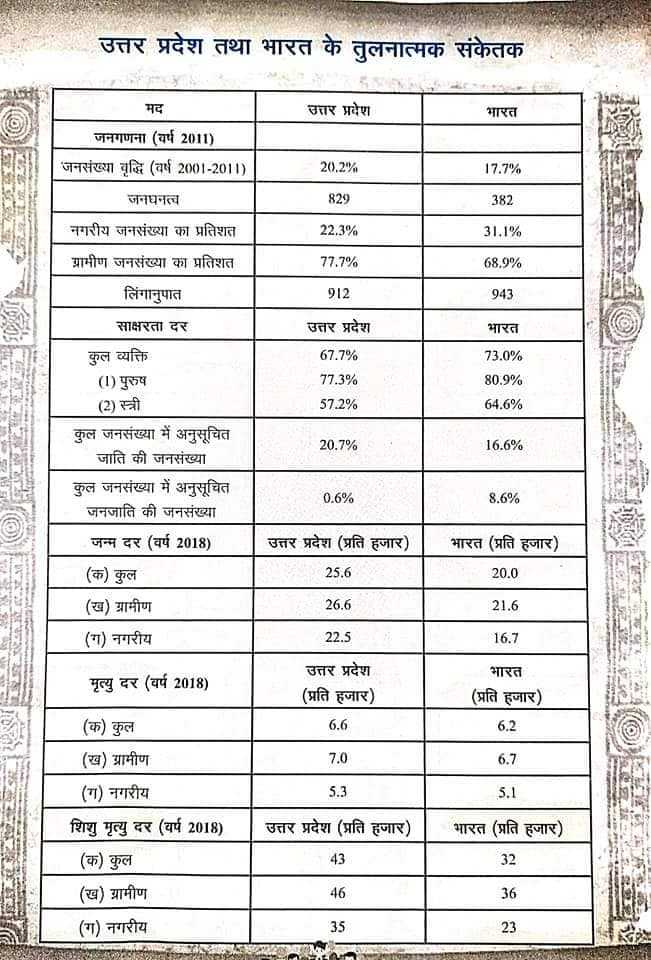 उत्तर प्रदेश तथा भारत के तुलनात्मक संकेतक
मद उत्तर प्रदेश भारत
जनगणना (वर्ष 2011)
जनसंख्या वृद्धि (वर्ष 2001-2011) 20.2% 17.7%
जनघनत्व 829 382
नगरीय जनसंख्या का प्रतिशत 22.3% 31.1%
ग्रामीण जनसंख्या का प्रतिशत 77.7% 68.9%
लिंगानुपात 912 943
साक्षरता दर उत्तर प्रदेश भारत
कुल व्यक्ति 67.7% 73.0%
(1) पुरुष 77.3% 80.9%
(2) स्त्री 57.2% 64.6%
कुल जनसंख्या में अनुसूचित
जाति की जनसंख्या 20.7% 16.6%
कुल जनसंख्या में अनुसूचित
जनजाति की जनसंख्या 0.6% 8.6%
जन्म दर (वर्ष 2018) उत्तर प्रदेश (प्रति हजार) भारत (प्रति हजार)
(क) कुल 25.6 20.0
(ख) ग्रामीण 26.6 21.6
(ग) नगरीय 22.5 16.7
मृत्यु दर (वर्ष 2018) उत्तर प्रदेश भारत
(प्रति हजार) (प्रति हजार)
(क) कुल 6.6 6.2
(ख) ग्रामीण 7.0 6.7
(ग) नगरीय 5.3 5.1
शिशु मृत्यु दर (वर्ष 2018) उत्तर प्रदेश (प्रति हजार) भारत (प्रति हजार)
(क) कुल 43 32
(ख) ग्रामीण 46 36
(ग) नगरीय 35 23